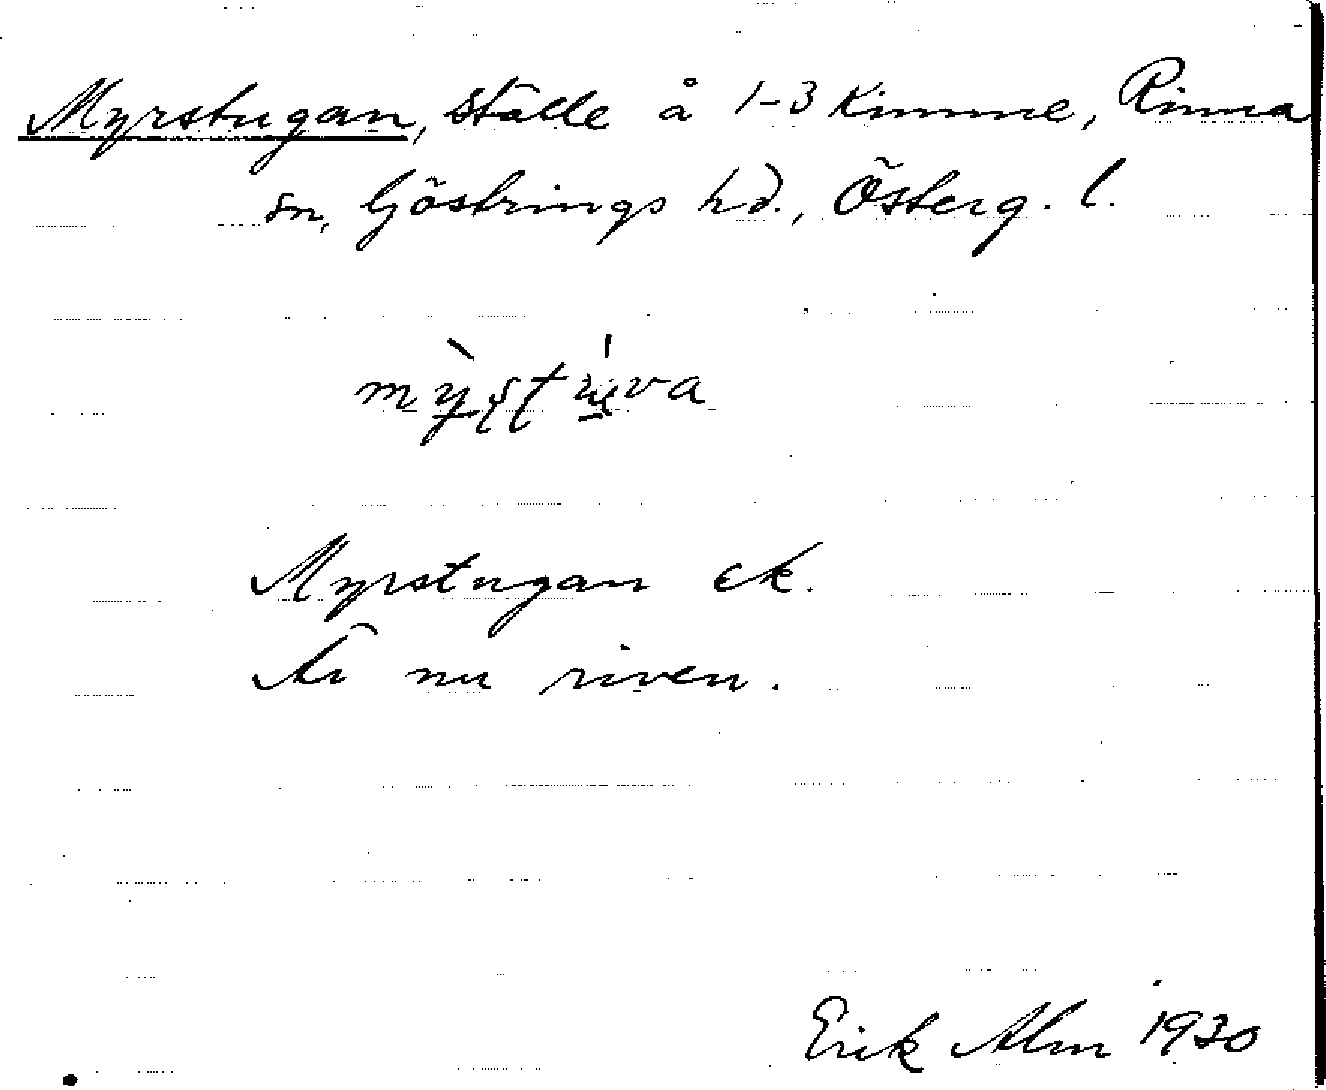 Myrstugan, ställe å 1-3 Kimme, Rinna
sn, Göstrings hd., Österg. l.
Myrstugan ek.
Är nu riven.
Erik Alm 1930